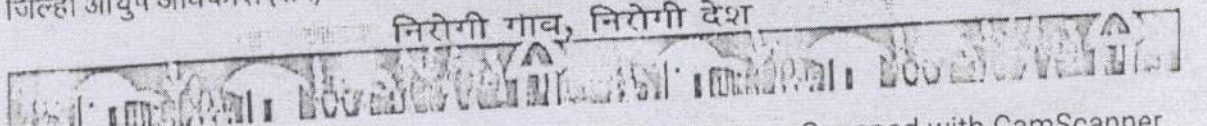 जिल्हा आयुष अधिकारी
निरोगी गाव, निरोगी देश
Scanned with CamScanner